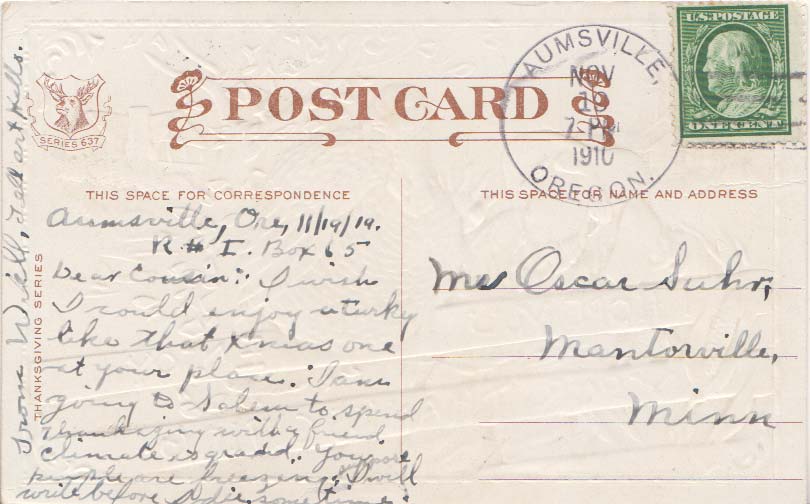 POST CARD
SERIES 637
AUMSVILLE,
NOV
1910
OREGON.
U.S. POSTAGE
ONE CENT
THIS SPACE FOR CORRESPONDENCE
Aumsville, Ore, 11/19/10.
R # I. Box 65
Dear Cousin: I wish
I could enjoy a turky
like that xmas one
at your place. I am
going to Salem to spend
Thanksgiving with a friend
Climate is grand. You
people are freezing. I will
write before sometime.
From Will
THANKSGIVING SERIES
THIS SPACE FOR NAME AND ADDRESS
Oscar Suhr,
Mantorville,
Minn